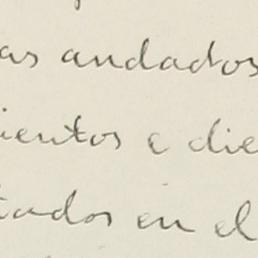 as andados
ientos e die
tados en el